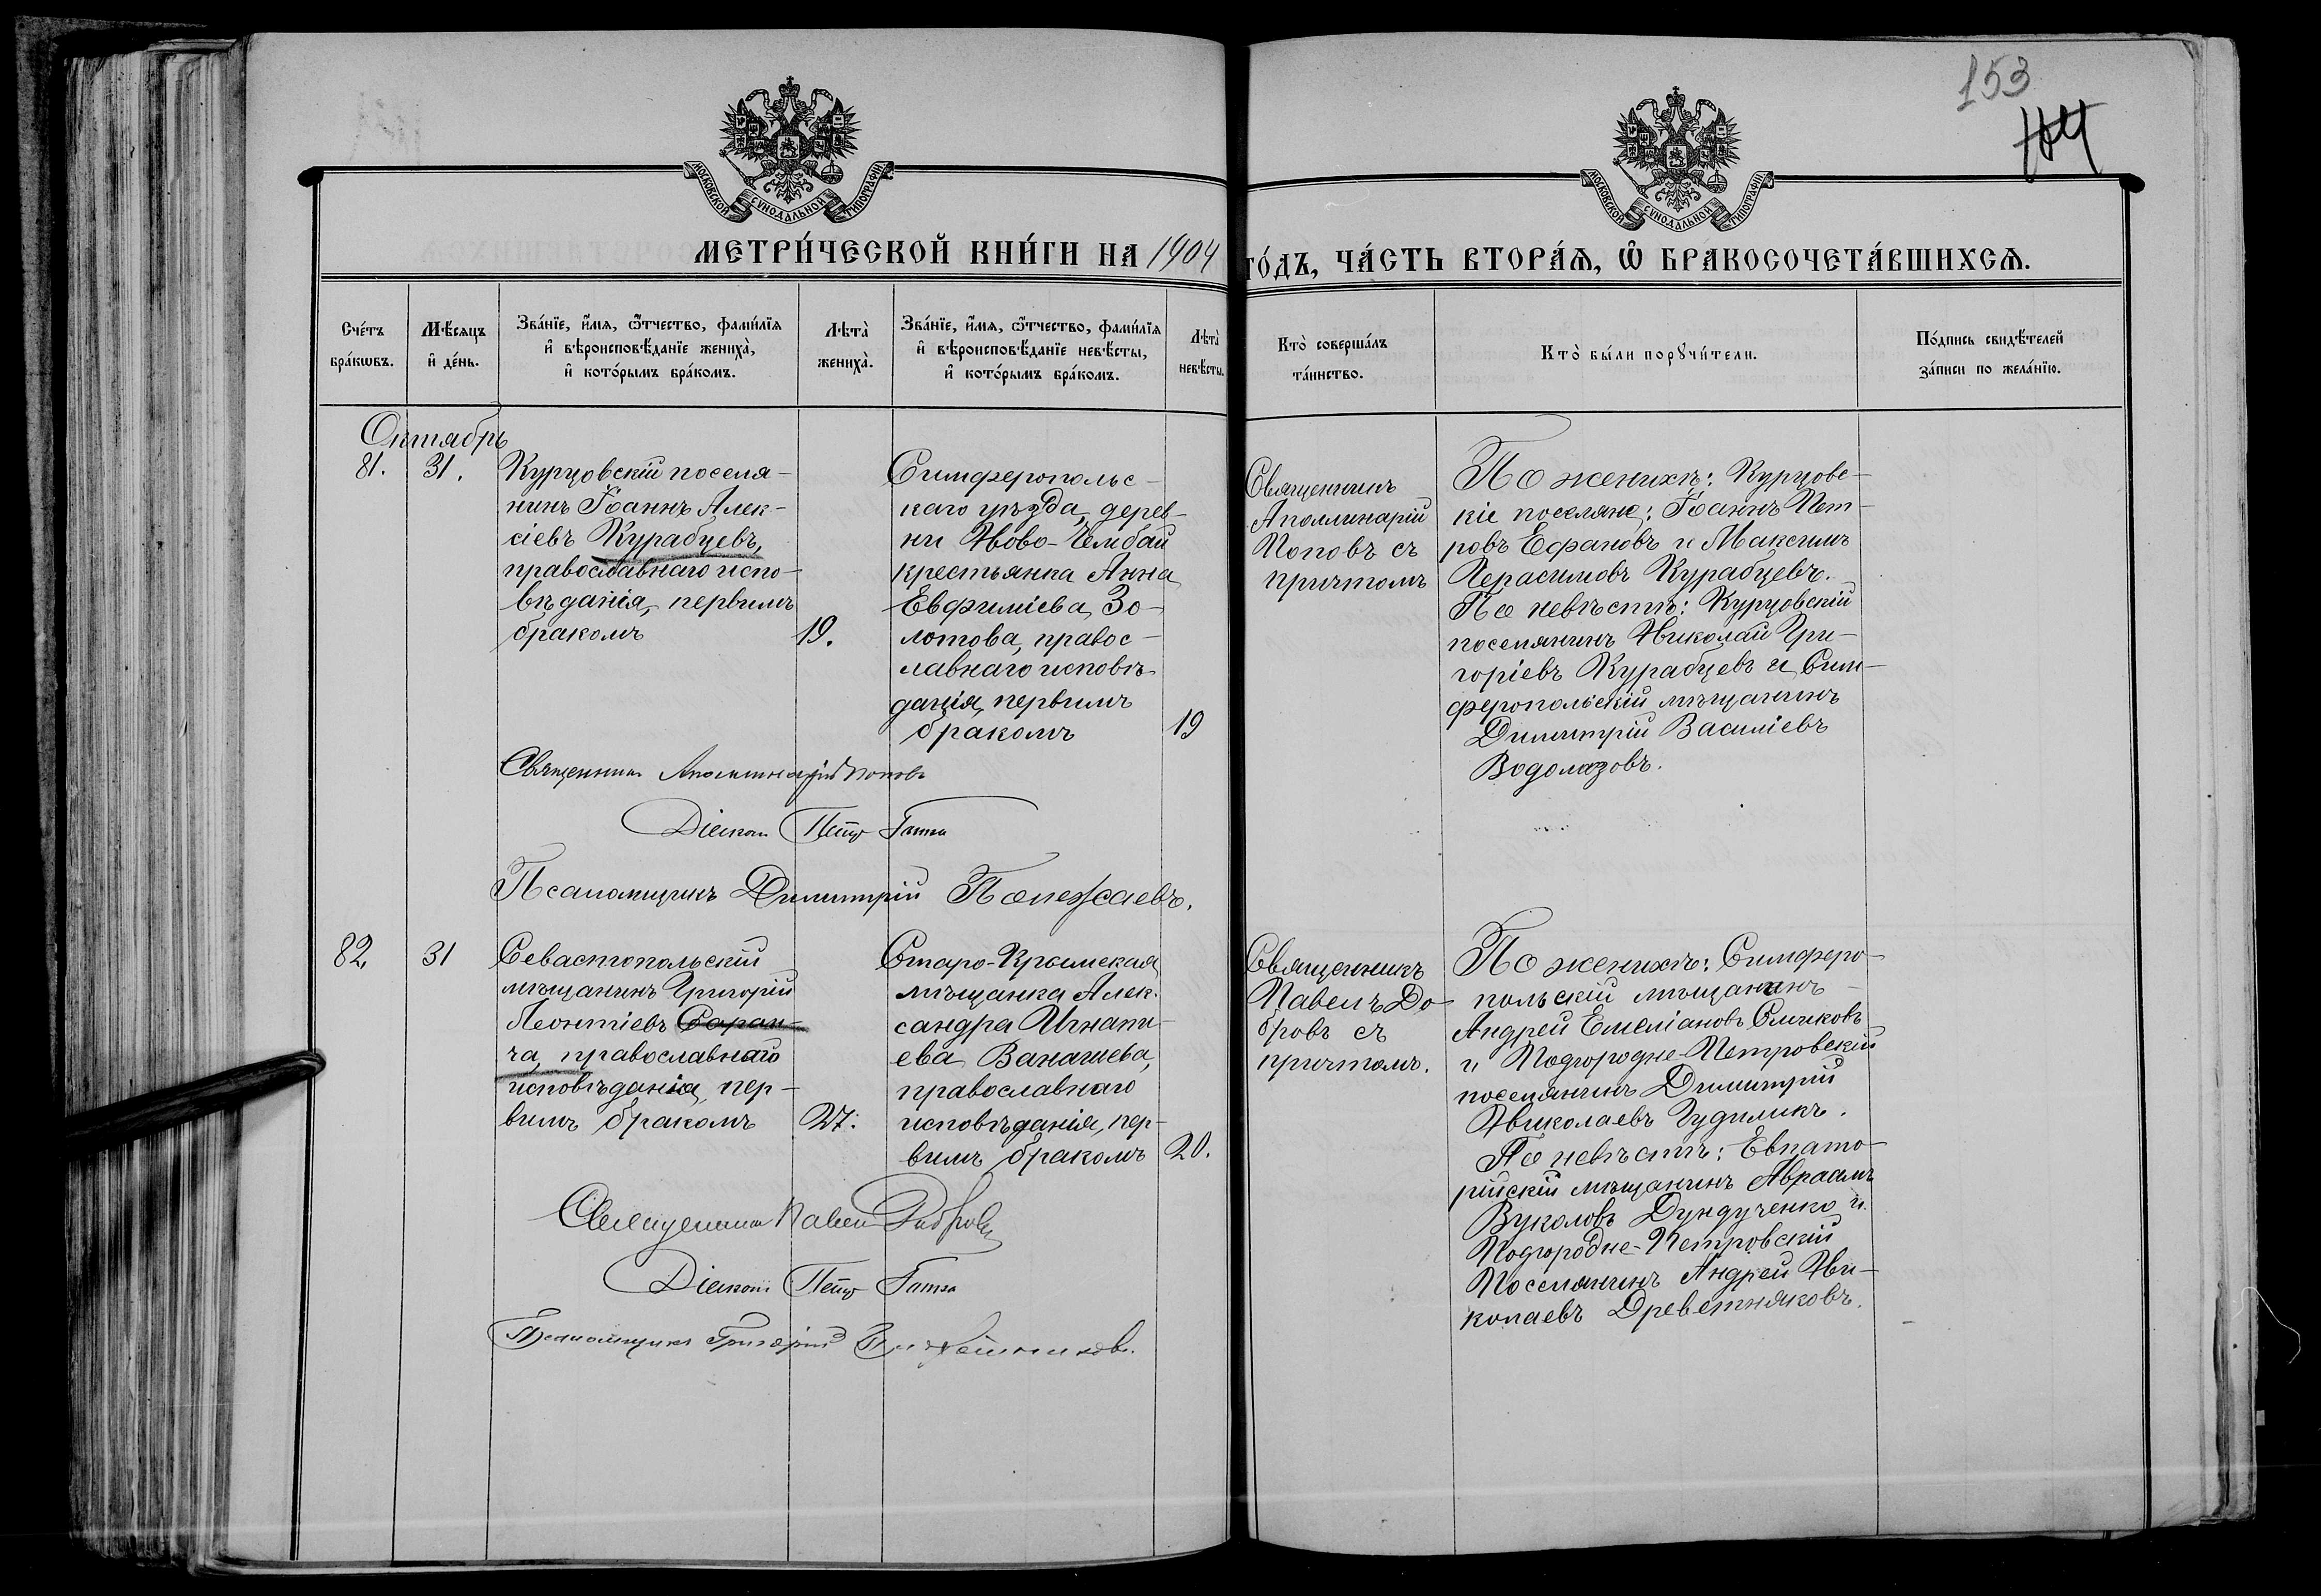 153
МОСКОВСКОЙ СѴНОДАЛЬНОЙ ТИПОГРАФІИ
МОСКОВСКОЙ СѴНОДАЛЬНОЙ ТИПОГРАФІИ
МЕТРИ́ЧЕСКОЙ КНИ́ГИ НА 1904
ГО́ДЪ, ЧА́СТЬ ВТОРА́Ѧ, Ѽ БРАКОСОЧЕТА́ВШИХСѦ.
Сче́тъ
бра́кѡвъ.
Мѣ́сяцъ
и҆ де́нь.
Зва́нїе, и҆́мя, ѻ҆́тчество, фами́лїя
и҆ вѣроисповѣ́данїе жениха̀,
и҆ кото́рымъ бра́комъ.
Лѣта̀
жениха̀.
Зва́нїе, и҆́мя, ѻ҆́тчество, фами́лїя
и҆ вѣроисповѣ́данїе невѣ́сты,
и҆ кото́рымъ бра́комъ.
Лѣта̀
невѣ́сты.
Кто̀ соверша́лъ
та́инство.
Кто̀ бы́ли порꙋчи́тели.
По́дпись свидѣ́телей
за́писи по жела́нїю.
Октябрь
81.
31.
Курцовскій поселя-
нинъ Іоаннъ Алек-
сіевъ Курабцевъ,
православнаго испо-
вѣданія, первымъ
бракомъ
19.
Симферопольс-
каго уѣзда, дерев-
ни Ново-Чембай
крестьянка Анна
Евфиміева Зо-
лотова, правос-
лавнаго исповѣ-
данія, первымъ
бракомъ
19
Священникъ
Аполлинарій
Поповъ съ
причтомъ
По женихѣ: Курцовс-
кіе поселяне: Іоаннъ Пет-
ровъ Ефановъ и Максимъ
Герасимовъ Курабцевъ.
По невѣстѣ: Курцовскій
поселянинъ Николай Гри-
горіевъ Курабцевъ и Сим-
феропольскій мѣщанинъ
Димитрій Василіевъ
Водолазовъ.
Священникъ Аполлинарій Поповъ
Діаконъ Петръ
Псаломщикъ Димитрій Полежаевъ.
82.
31
Севастопольскій
мѣщанинъ Григорій
Леонтіевъ Саран-
ча, православнаго
исповѣданія, пер-
вымъ бракомъ
27.
Старо-Крымская
мѣщанка Алек-
сандра Игнати-
ева Ванашева,
православнаго
исповѣданія, пер-
вымъ бракомъ
20.
Священникъ
Павелъ До-
бровъ съ
причтомъ.
По женихѣ: Симферо-
польскій мѣщанинъ
Андрей Емеліановъ
и Подгородне-Петровскій
поселянинъ Димитрій
Николаевъ Гудиликъ.
По невѣстѣ: Евпато-
рійскій мѣщанинъ Авраамъ
Вуколовъ Дундученко и
Подгородне-Петровскій
Поселянинъ Андрей Ни-
колаевъ Древетняковъ.
Священникъ Павелъ Добровъ
Діаконъ Петръ
Псаломщикъ Григорій